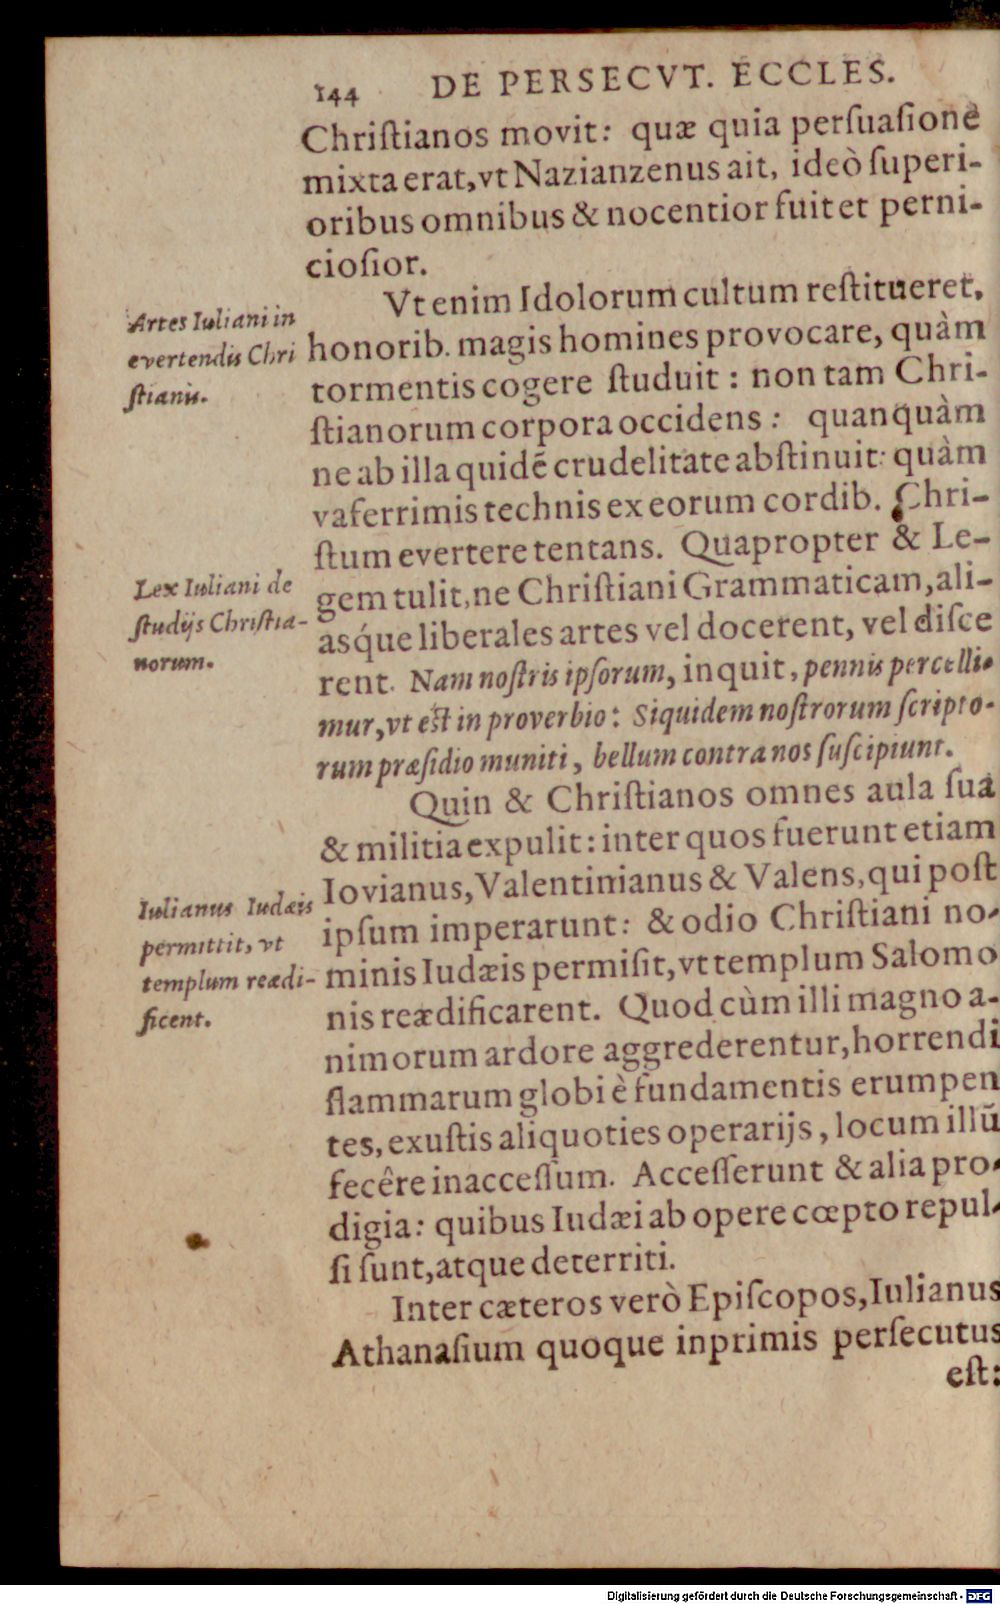 144 DE PERSECVT. ECCLES.
Chriſtianos movit: quæ quia perſuaſione
mixta erat, vt Nazianzenus ait, ideò ſuperi-
oribus omnibus & nocentior fuit et perni-
cioſior.
Artes Iuliani in
evertendis Chri
ſtianis.
Vt enim Idolorum cultum reſtitueret,
honorib. magis homines provocare, quàm
tormentis cogere ſtuduit: non tam Chri-
ſtianorum corpora occidens: quanquàm
ne ab illa quidẽ crudelitate abſtinuit: quàm
vaferrimis technis ex eorum cordib. Chri-
ſtum evertere tentans. Quapropter & Le-
Lex Iuliani de
ſtudijs Chriſtia-
norum.
gem tulit, ne Chriſtiani Grammaticam, ali-
asq́ue liberales artes vel docerent, vel diſce
rent. Nam noſtris ipſorum, inquit, pennis percelli-
mur, vt eſt in proverbio: Siquidem noſtrorum ſcripto-
rum præſidio muniti, bellum contra nos ſuſcipiunt.
Quin & Chriſtianos omnes aula ſua
& militia expulit: inter quos fuerunt etiam
Iovianus, Valentinianus & Valens, qui poſt
Iulianus Iudæis
permittit, vt
templum reædi-
ficent.
ipſum imperarunt: & odio Chriſtiani no-
minis Iudæis permiſit, vt templum Salomo
nis reædificarent. Quod cùm illi magno a-
nimorum ardore aggrederentur, horrendi
flammarum globi è fundamentis erumpen
tes, exuſtis aliquoties operarijs, locum illũ
fecêre inacceſſum. Acceſſerunt & alia pro-
digia: quibus Iudæi ab opere cœpto repul-
ſi ſunt, atque deterriti.
Inter cæteros verò Epiſcopos, Iulianus
Athanaſium quoque inprimis perſecutus
eſt:
Digitalisierung gefördert durch die Deutsche Forschungsgemeinschaft - DFG